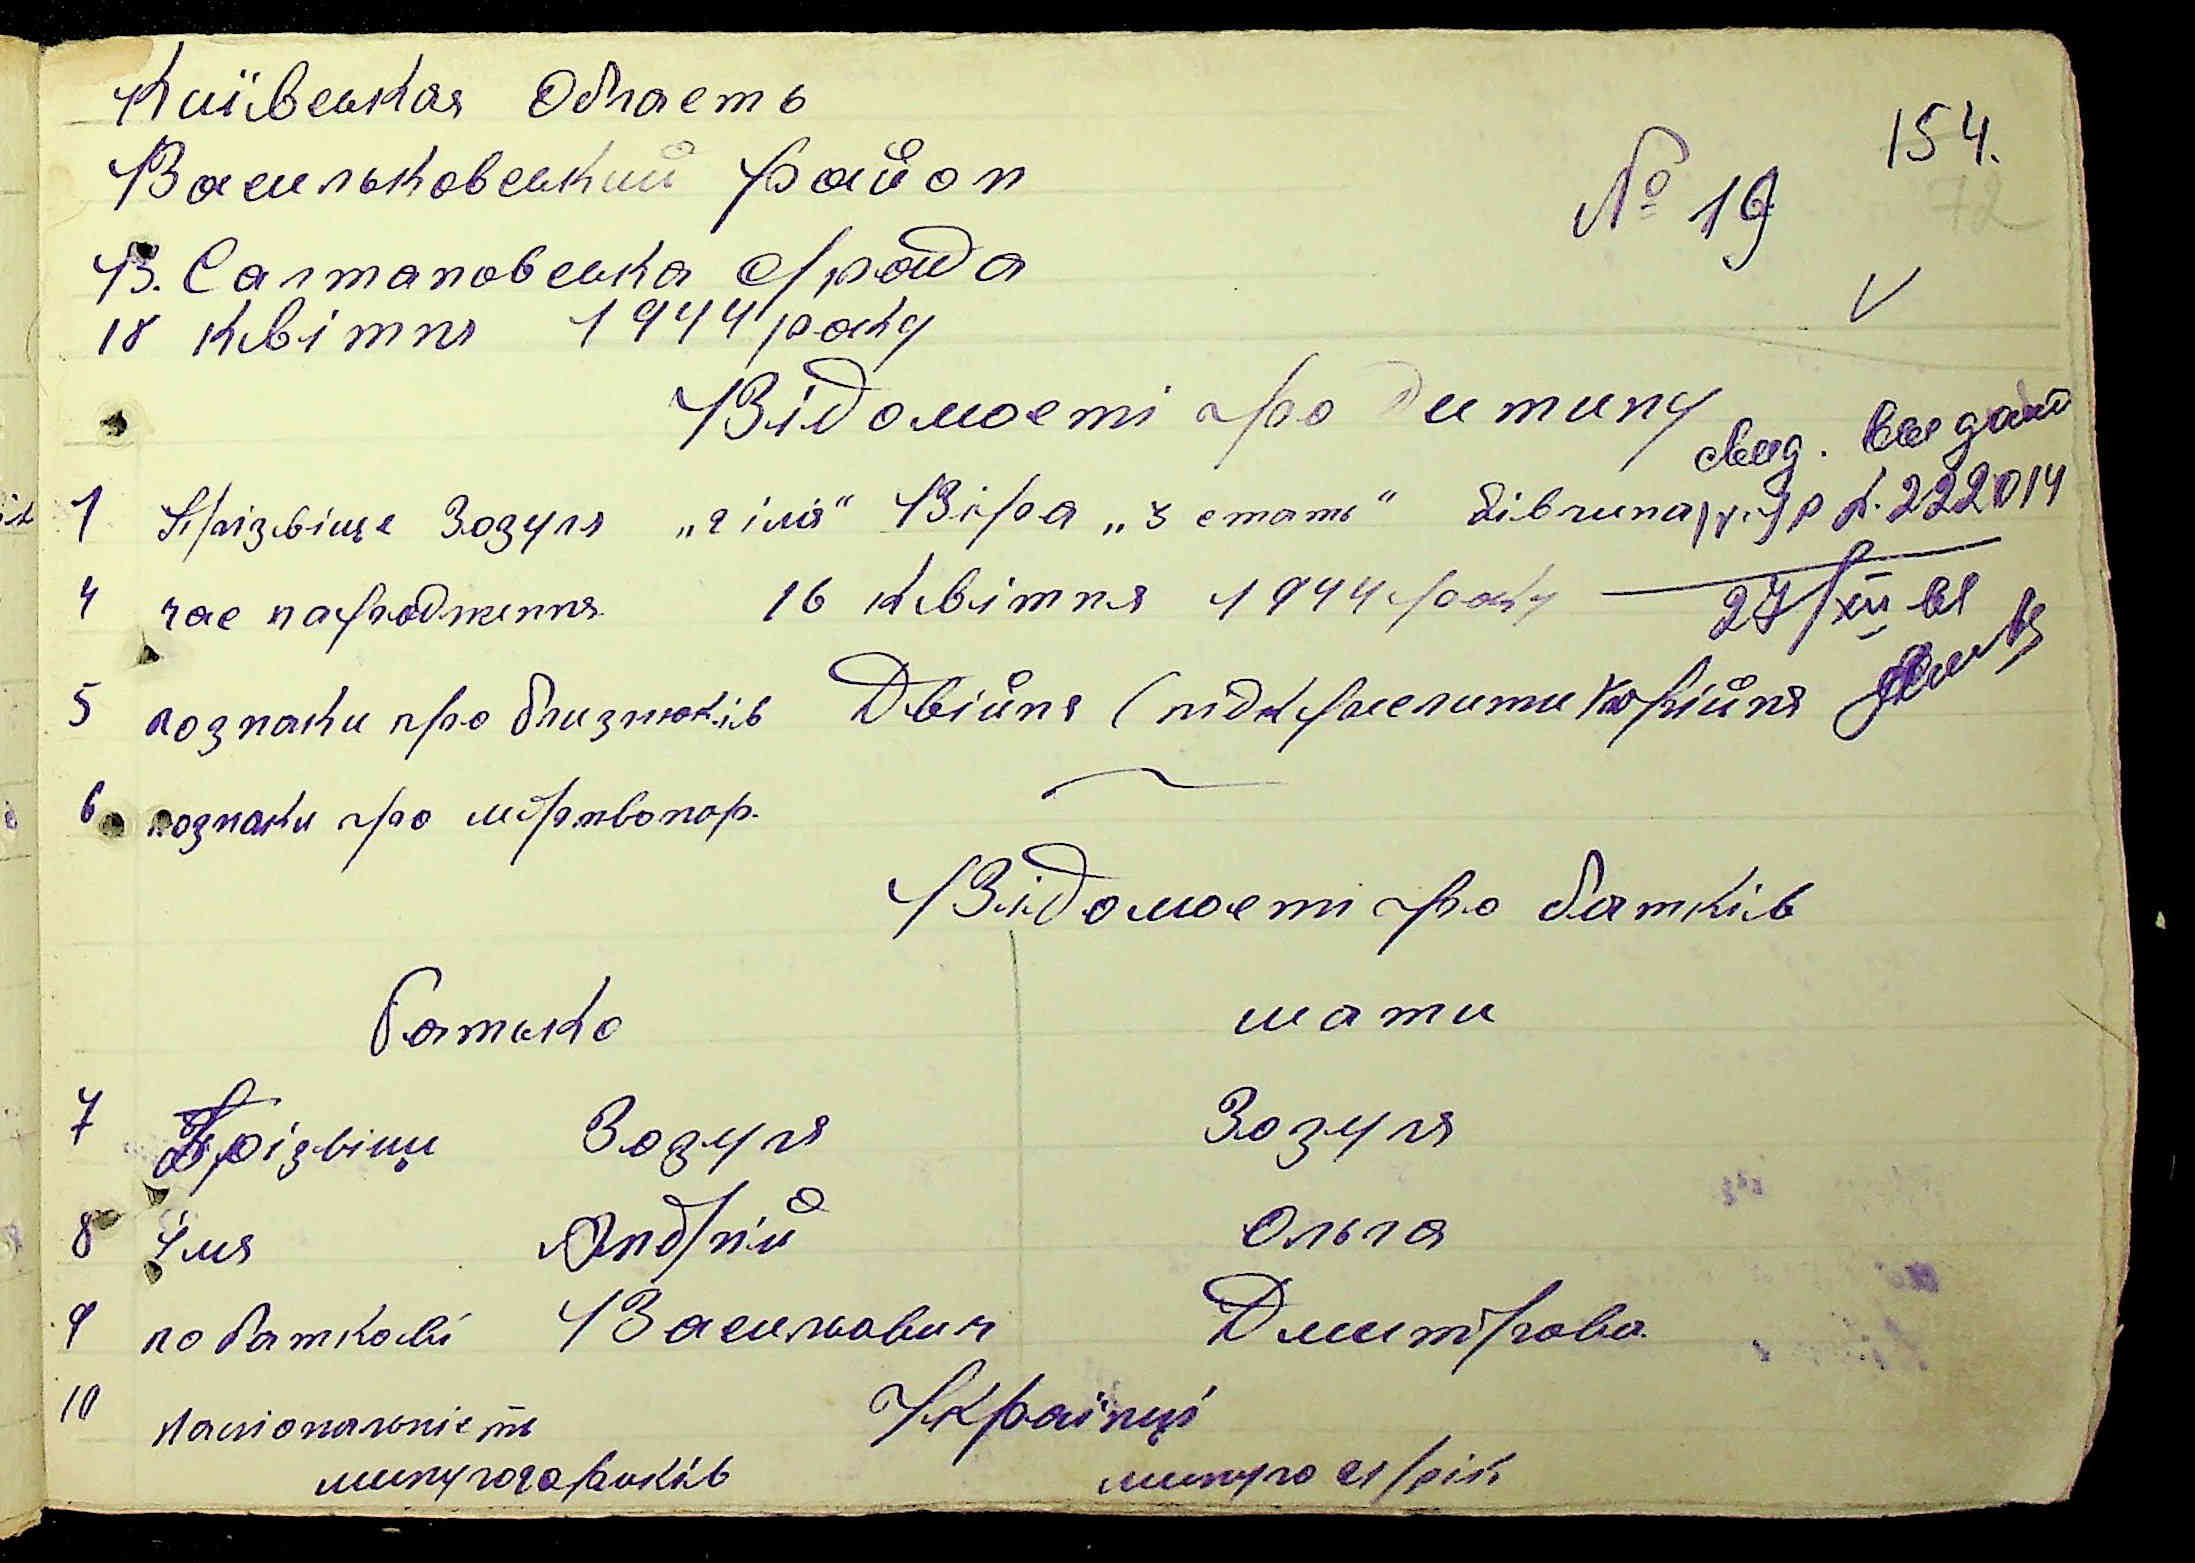 Київськая Область
154.
Васильковський район
№ 19
72
В. Салтановська с/рада
18 квітня 1944 року
Відомості про дитину
1 Прізвіще Зозуля „2 імя" Віра „3 стать" дівчина
222014
4 час народження 16 квітня 1944 року
27/XII
5 познаки про близнюків Двійня (підкреслити) трійня
6 познаки про мертвонор.
Відомості про батків
батько мати
7 Прізвіщ Зозуля Зозуля
8 імя Андрій Ольга
9 по батькові Васильович Дмитрова
10 національність Українці
минуло років минуло 21 рік